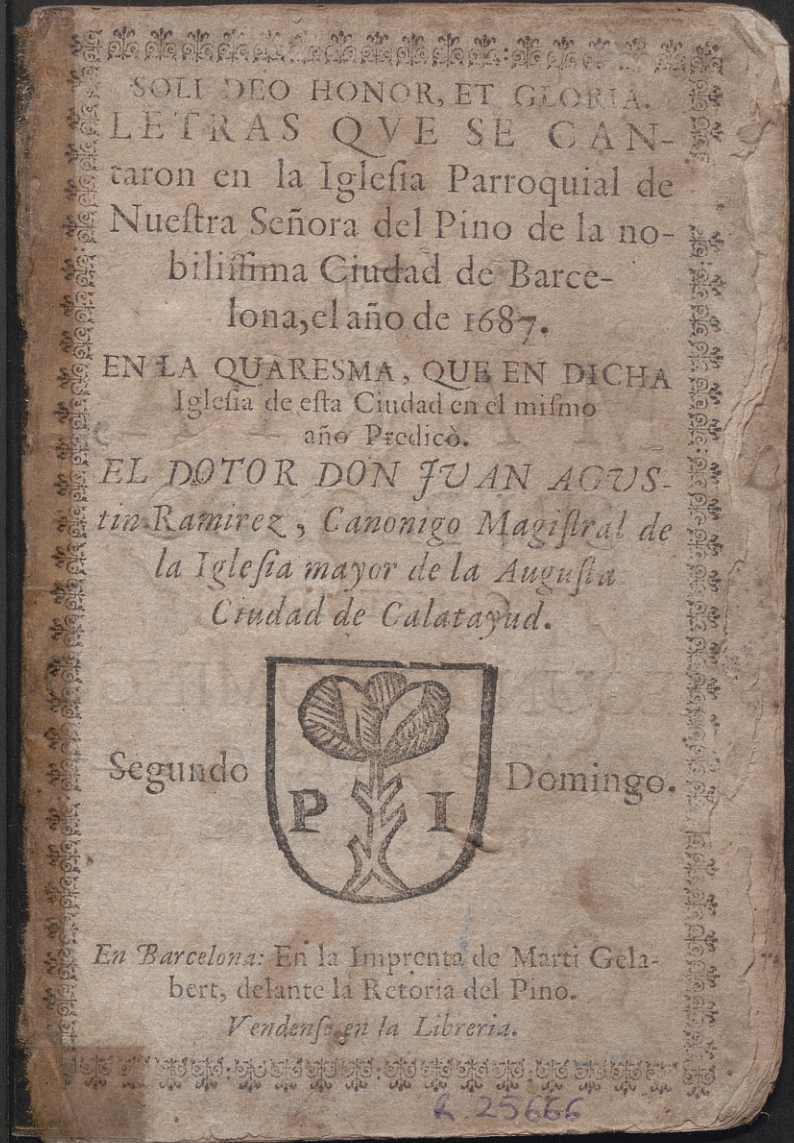 SOLI DEO HONOR, ET GLORIA.
LETRAS QVE SE CAN-
taron en la Igleſia Parroquial de
Nueſtra Señora del Pino de la no-
biliſſima Ciudad de Barce-
lona, el año de 1687.
EN LA QUARESMA, QUE EN DICHA
Igleſia de eſta Ciudad en el miſmo
año Predicò.
EL DOTOR DON JUAN AGUS-
tin Ramirez, Canonigo Magiſtral de
la Igleſia mayor de la Auguſta
Ciudad de Calatayud.
Segundo Domingo.
P I
En Barcelona: En la Imprenta de Marti Gela-
bert, delante la Retoria del Pino.
Vendenſe en la Libreria.
R. 25666